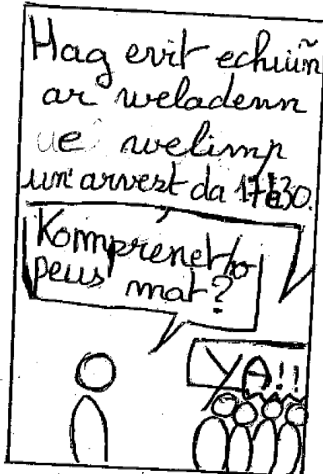 Hag evit echuiñ
ar weladenn
e welimp
un arvest da 17h30.
Komprenet ho
peus mat?
YA!!